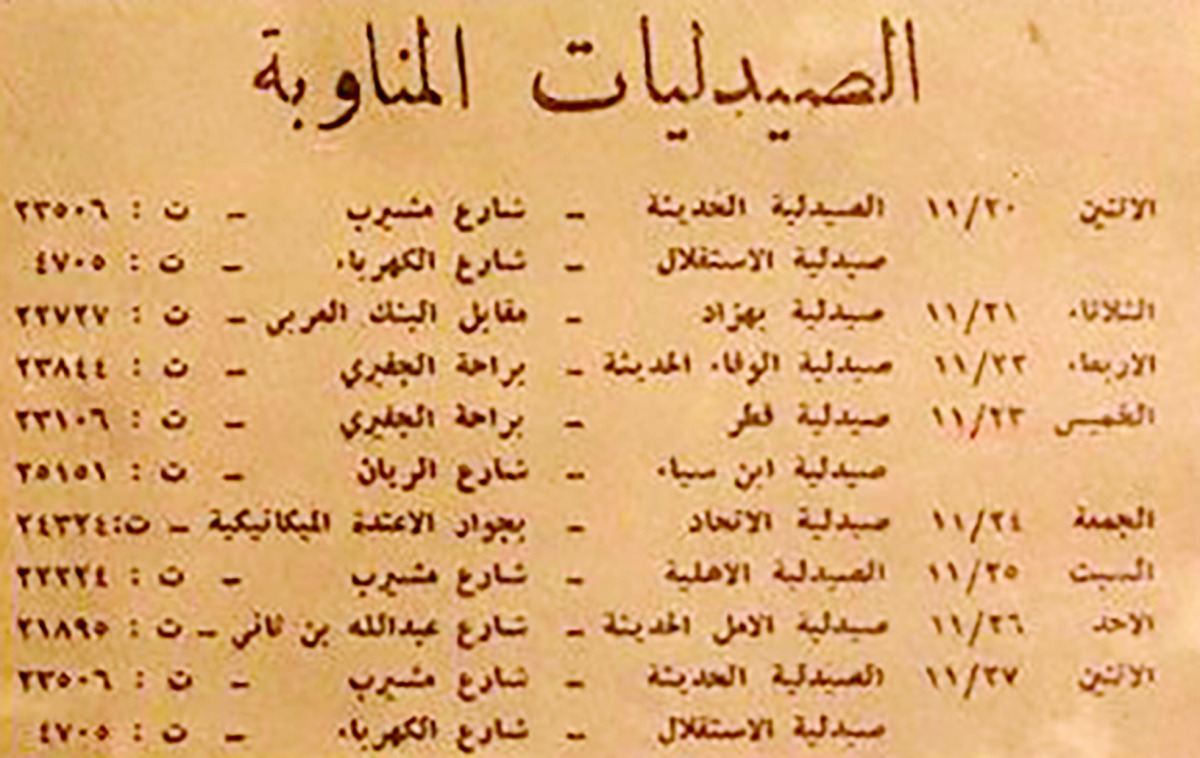 الصيدليات المناوبة
الاثنين ١١/٢٠ الصيدلية الحديثة – شارع مشيرب – ت : ٢٣٥٠٦
صيدلية الاستقلال – شارع الكهرباء – ت : ٤٧٠٥
الثلاثاء ١١/٢١ صيدلية بهزاد – مقابل البنك العربي – ت : ٢٢٧٢٧
الاربعاء ١١/٢٢ صيدلية الوفاء الحديثة – براحة الجفيري – ت : ٢٣٨٤٤
الخميس ١١/٢٣ صيدلية قطر – براحة الجفيري – ت : ٢٣١٠٦
صيدلية ابن سيناء – شارع الريان – ت : ٢٥١٥١
الجمعة ١١/٢٤ صيدلية الاتحاد – بجوار الاعتدة الميكانيكية – ت: ٢٤٣٢٤
السبت ١١/٢٥ الصيدلية الاهلية – شارع مشيرب – ت : ٢٢٢٢٤
الاحد ١١/٢٦ صيدلية الامل الحديثة – شارع عبدالله بن ثاني – ت : ٢١٨٩٥
الاثنين ١١/٢٧ الصيدلية الحديثة – شارع مشيرب – ت : ٢٣٥٠٦
صيدلية الاستقلال – شارع الكهرباء – ت : ٤٧٠٥